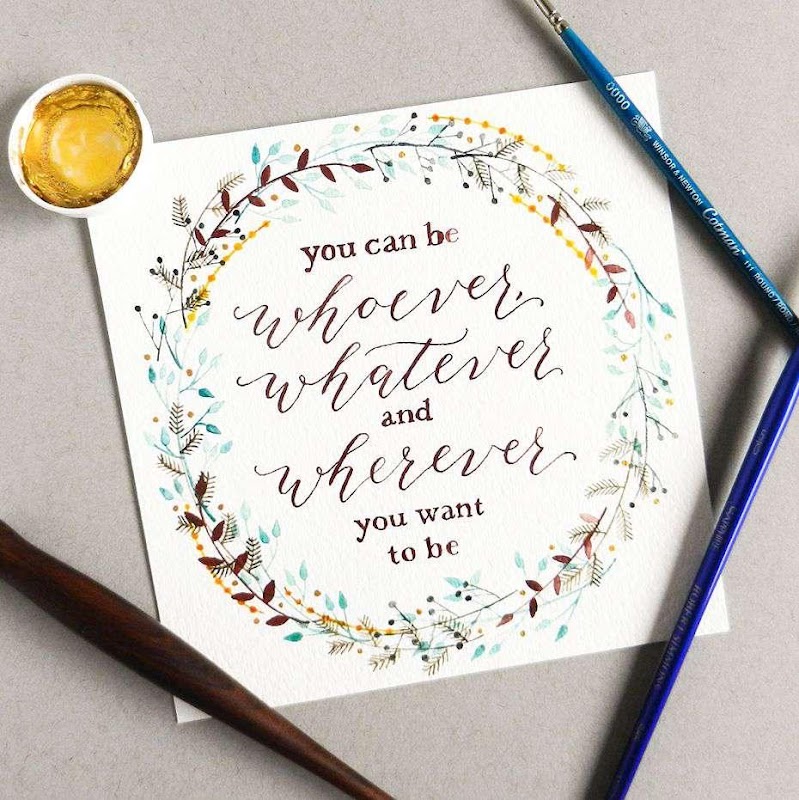 you can be
whoever,
whatever
and
wherever
you want
to be
0000
WINSOR & NEWTON
Cotman
111 ROUND/ROND
ROBERT SIMMONS